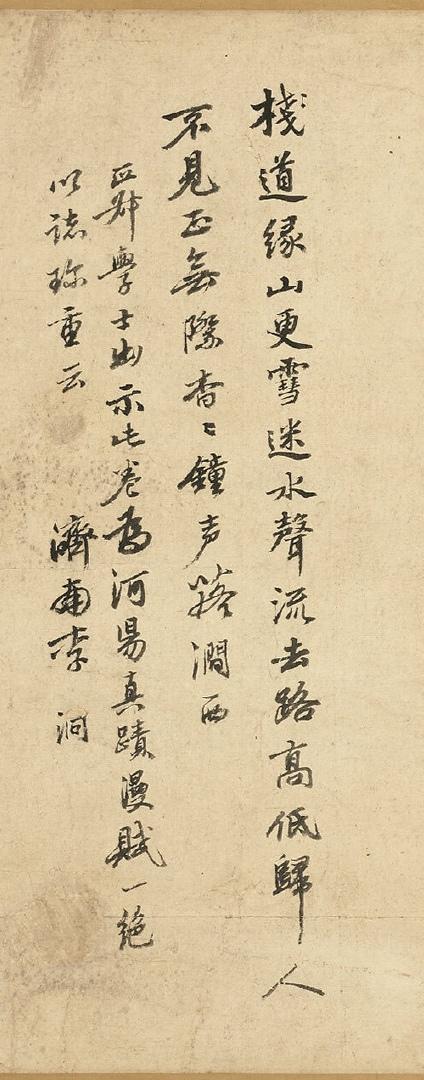 棧道緣山更雪迷水聲流去路高低歸人
不見正無際杳〻鐘声落澗西
學士出示此卷為河陽真蹟漫賦一絕
以誌珎重云　濟南李洞